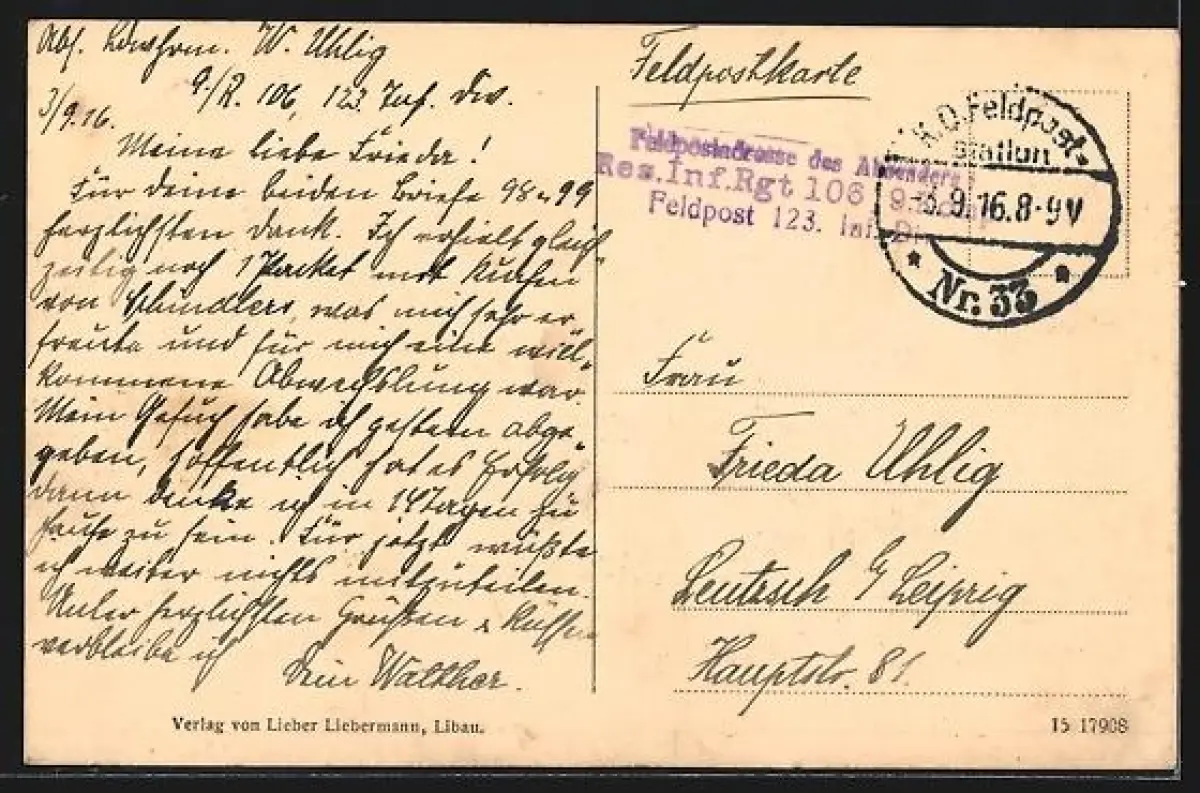 Abs. Ldwstrm. W. Uhlig
9./R. 106, 123. Inf. Div.
3/9.16.
Meine liebe Frieda!
Für deine beiden Briefe 98 u 99
herzlichsten Dank. Ich erhielt gleich
zeitig noch 1 Packet mit Kuchen
von Schindlers, was mich sehr er
freute und für mich eine will
kommene Abwechslung war.
Mein Gesuch habe ich gestern abge
geben, hoffentlich hat es Erfolg
dann denke ich in 14 Tagen zu
Hause zu sein. Für jetzt wüßte
ich weiter nichts mitzuteilen.
Unter herzlichsten Grüßen & Küssen
verbleibe ich
Dein Walther.
Verlag von Lieber Liebermann, Libau.
Feldpostkarte
Feldpostadresse des Absenders
Res. Inf. Rgt 106 9.
Feldpost 123. Inf. Div
K.D. Feldpost-
station
-3.9.16.8-9V
* Nr. 33 *
Frau
Frieda Uhlig
Leutzsch b/ Leipzig
Hauptstr. 81.
15 17908